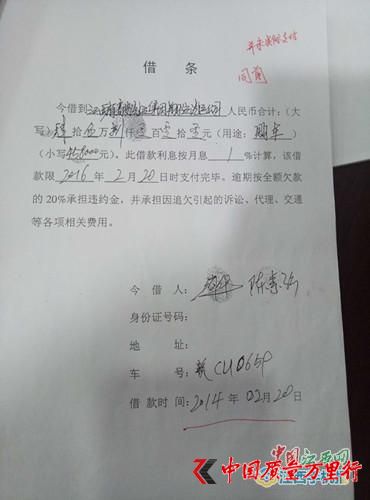 并未实际支付
同前
借 条
今借到 人民币合计:(大
写) 拾 伍 万 捌 仟 零 百 零 拾 零 元(用途: 购车 )
(小写458000元)。此借款利息按月息 1 %计算,该借
款限 2016 年 2 月 20 日时支付完毕。逾期按全额欠款
的 20%承担违约金,并承担因追欠引起的诉讼、代理、交通
等各项相关费用。
今 借 人:
身份证号码:
地 址:
车 号: 赣CU0659
借 款 时 间: 2014 年 02 月 20 日
中国江西网
中国质量万里行